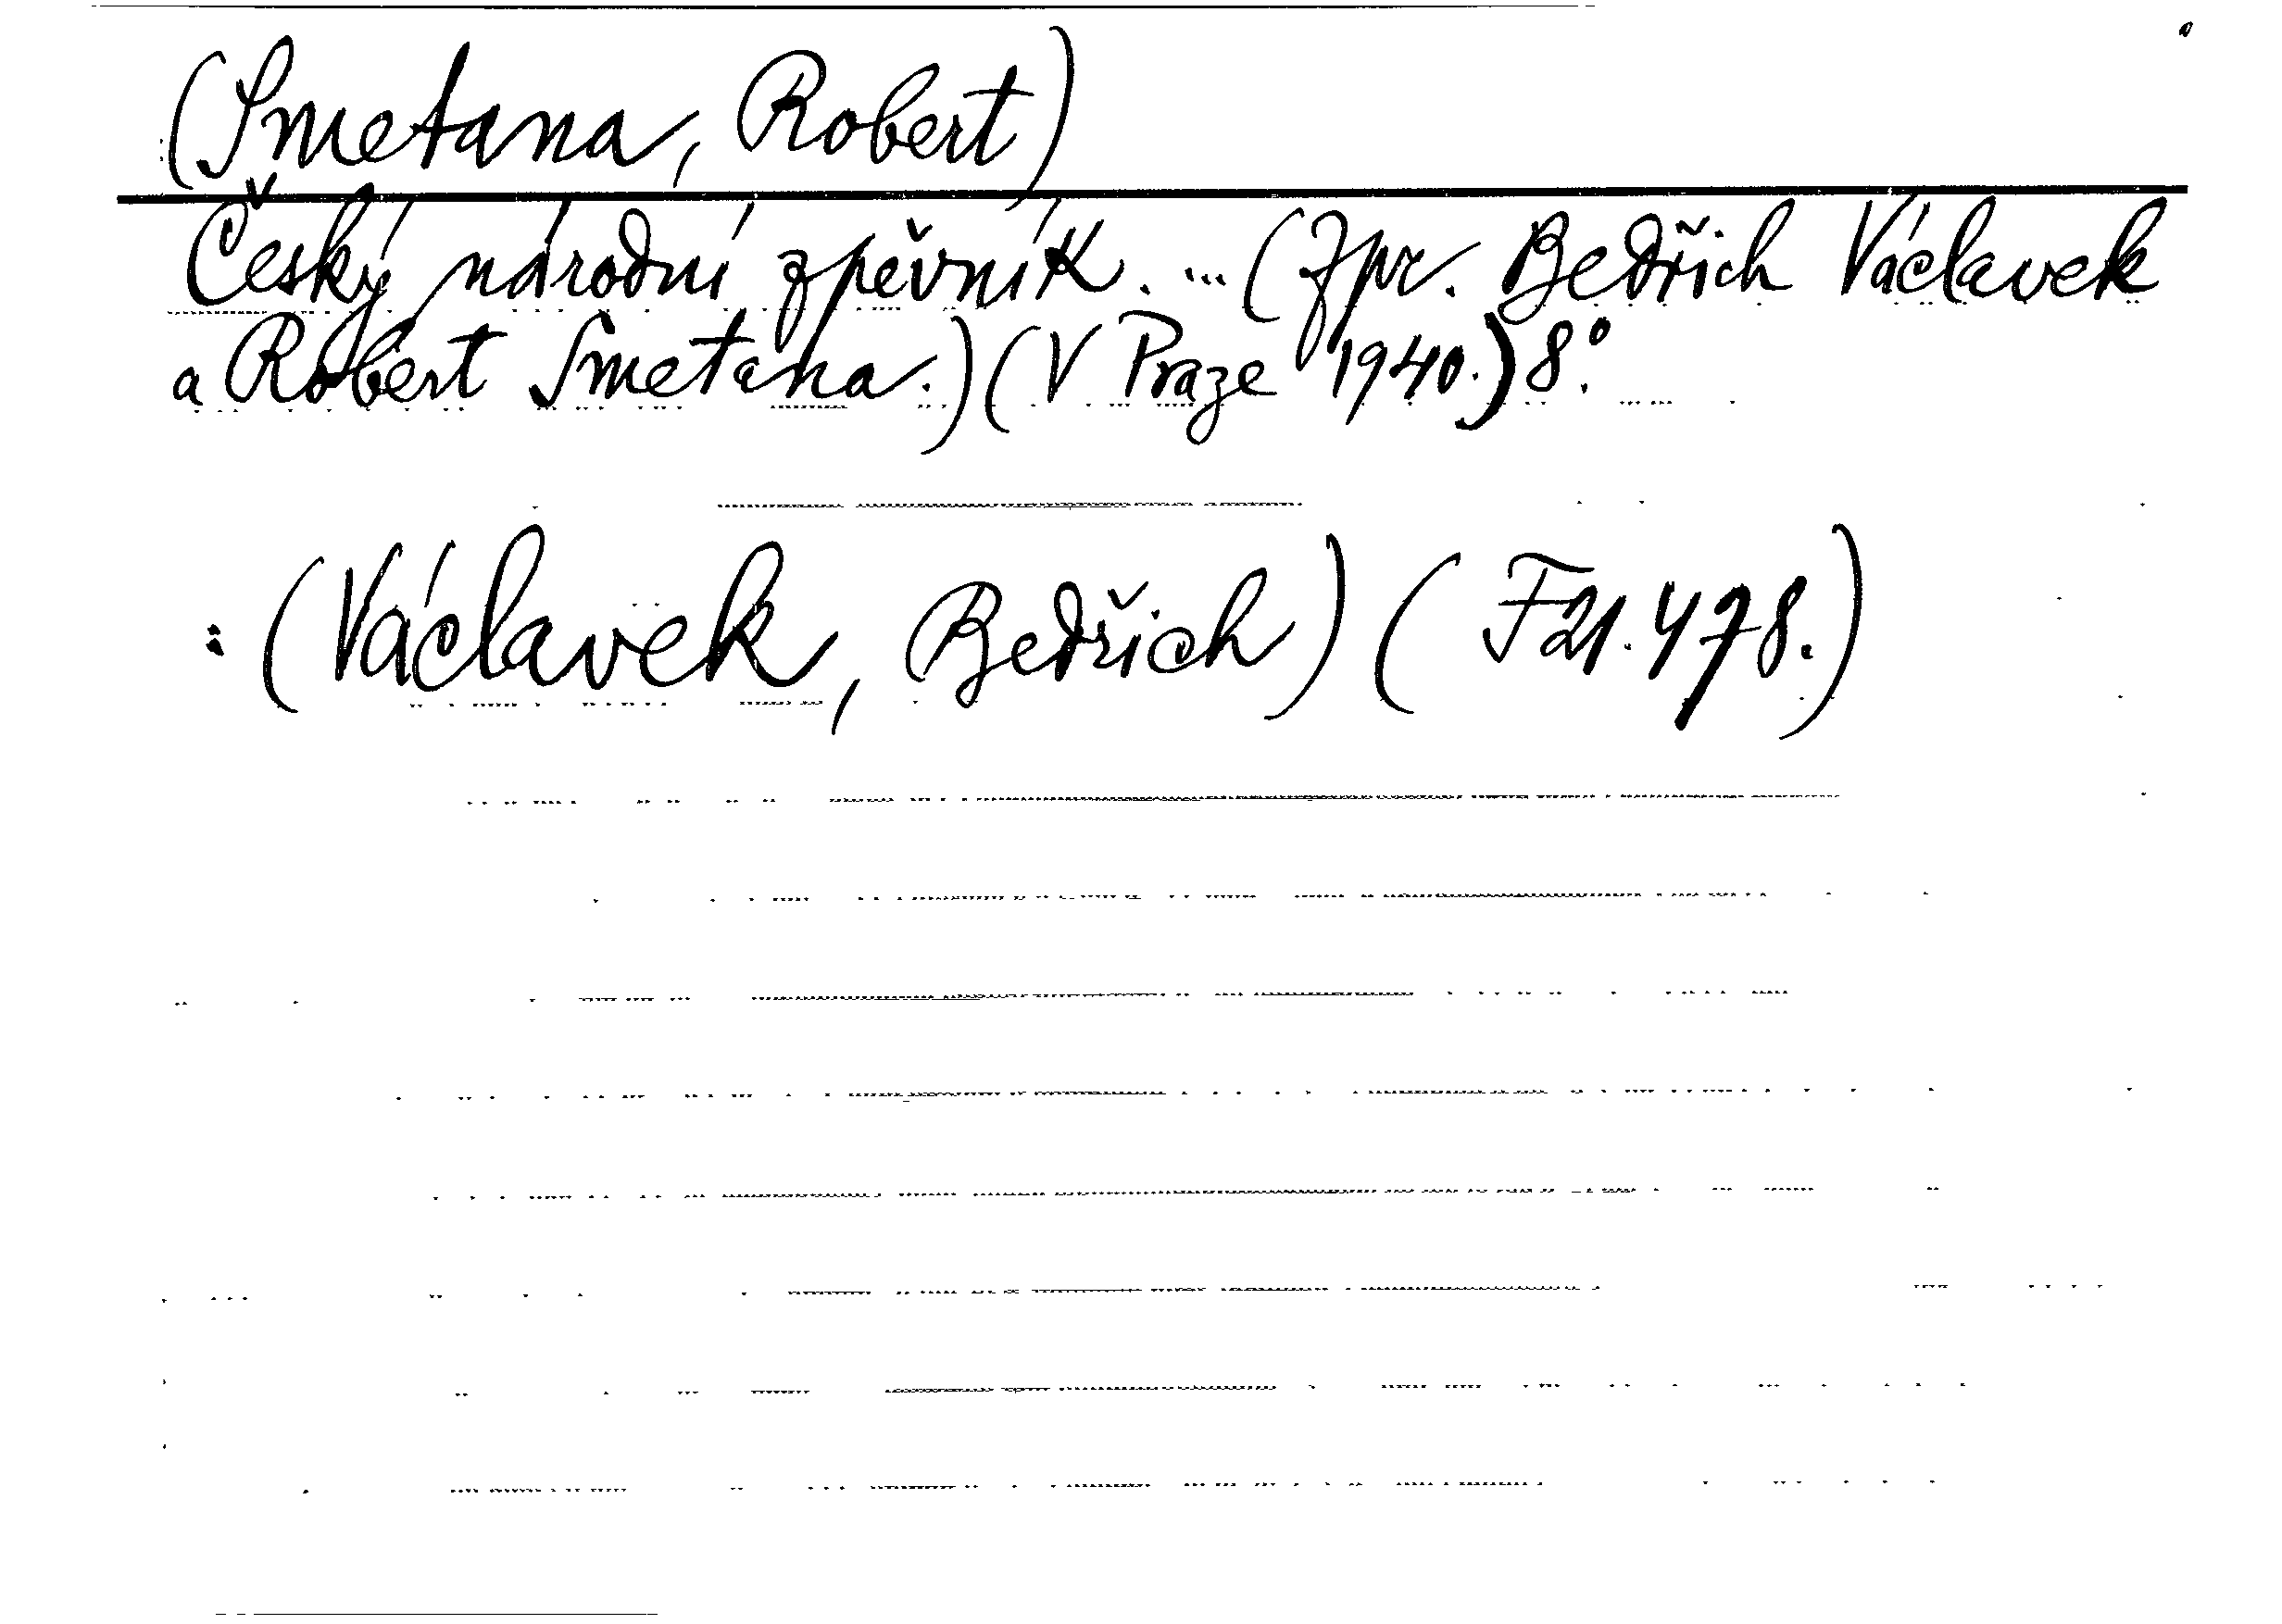 (Smetana, Robert)
Český národní zpěvník. ... (Zpr. Bedřich Václavek
a Robert Smetana.) (V Praze 1940.) 8°.
: (Václavek, Bedřich) (F21.478.)